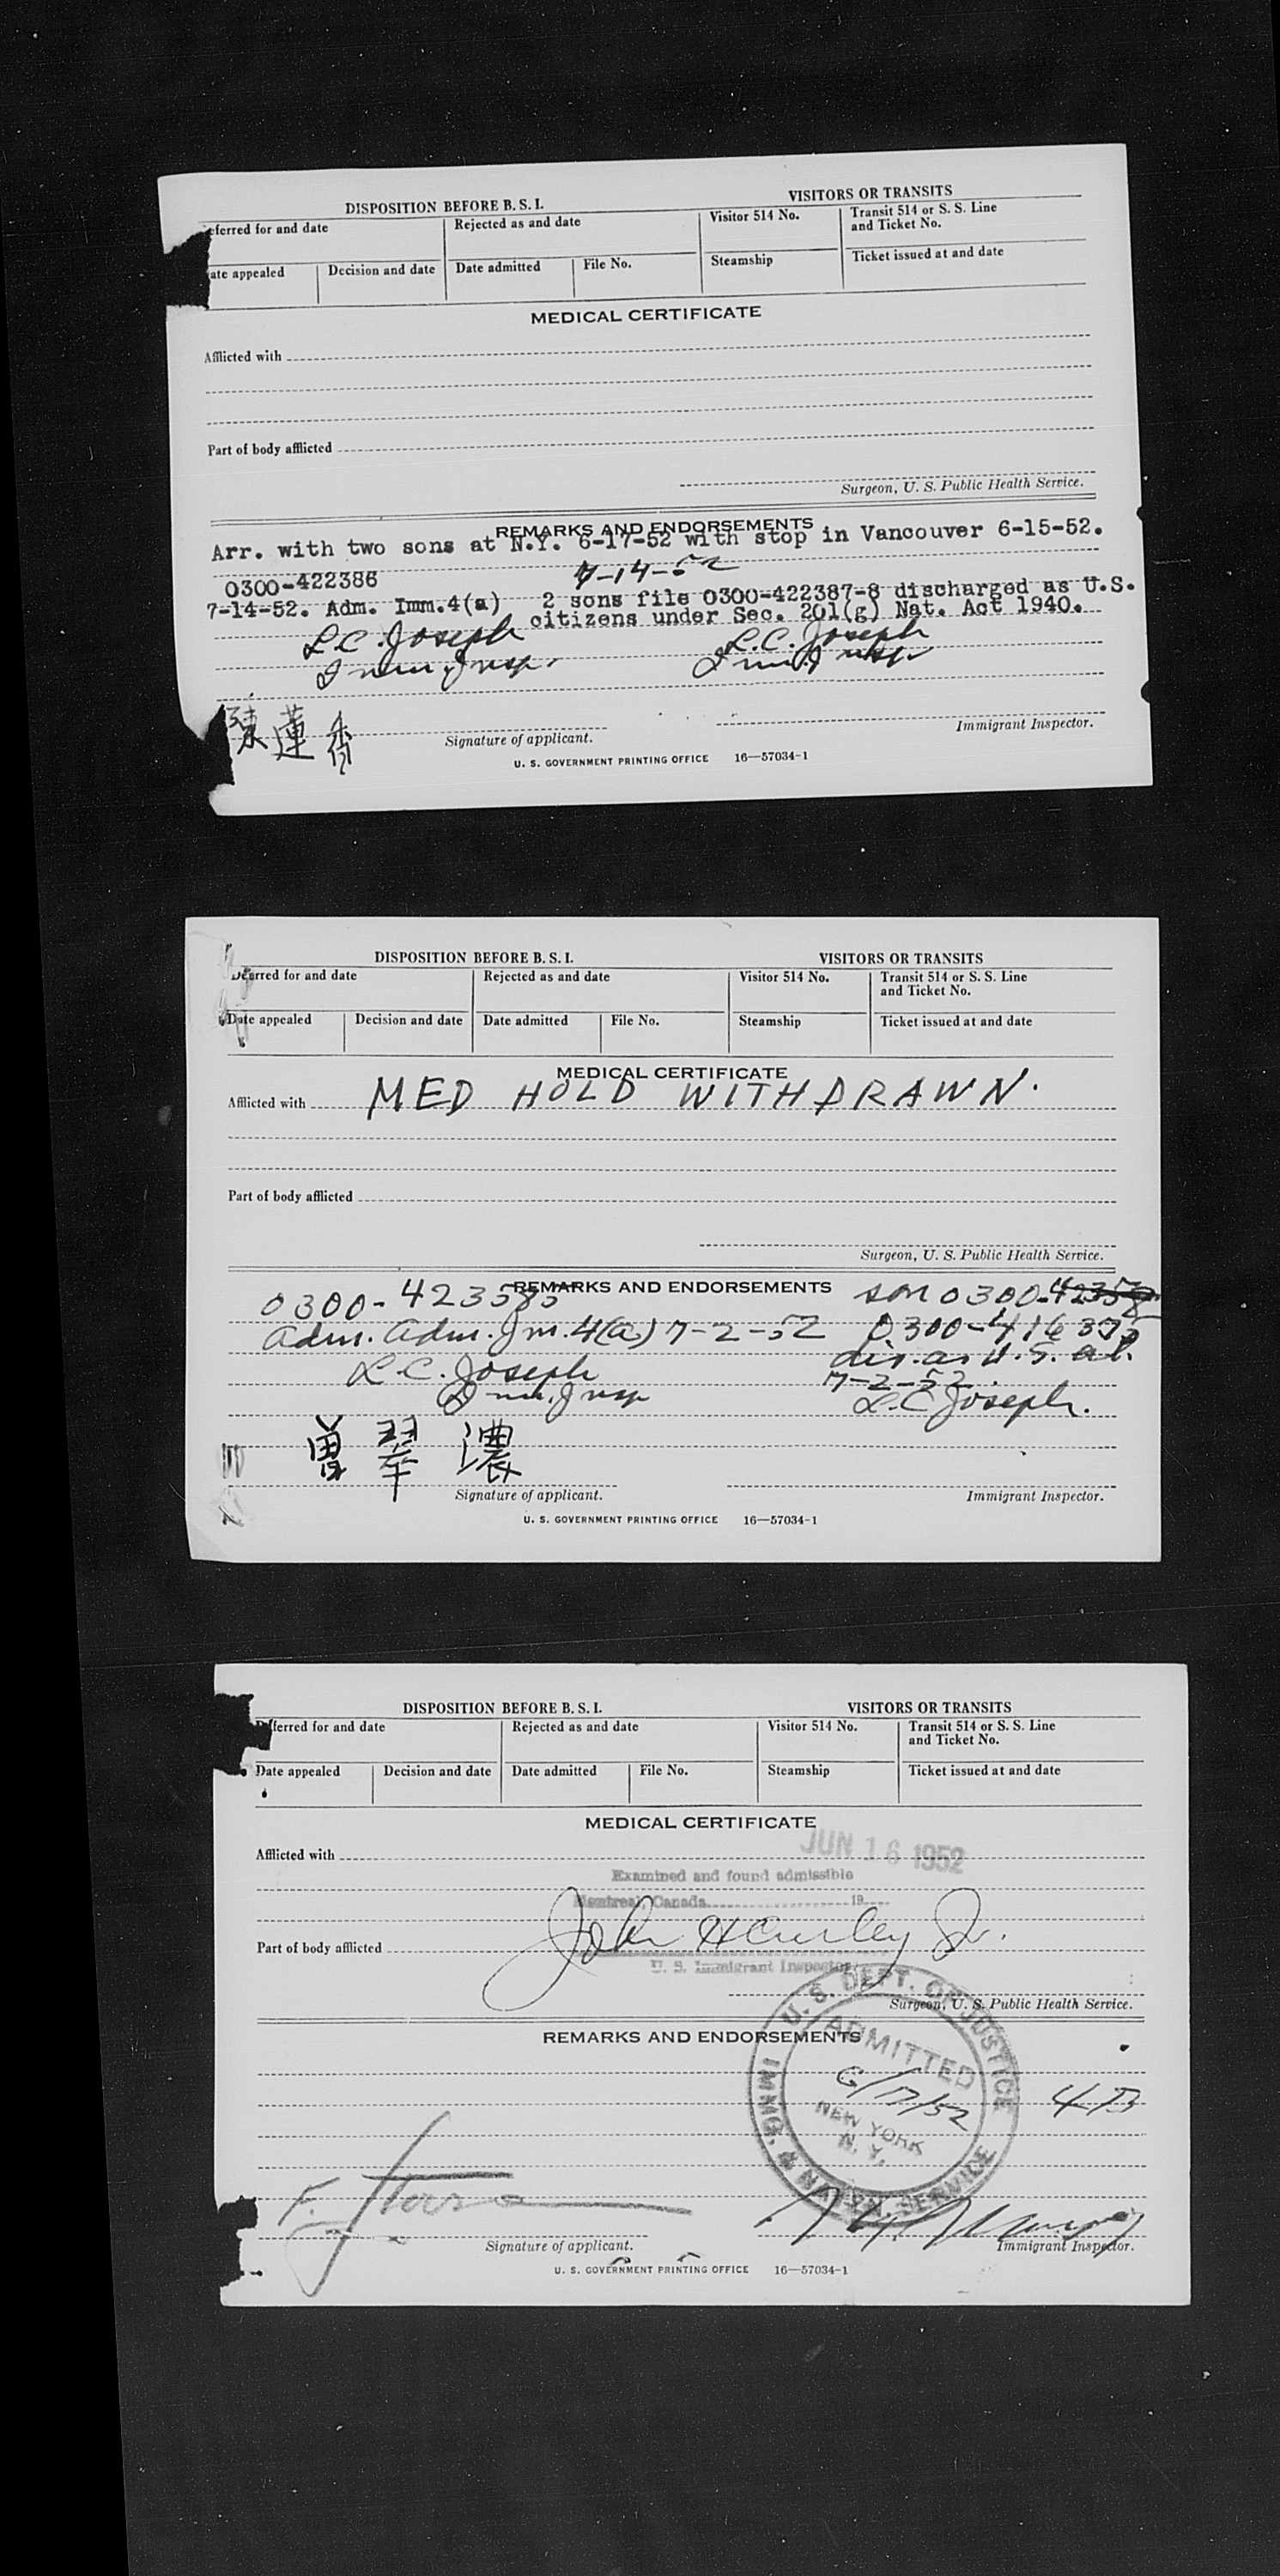 DISPOSITION BEFORE B. S. I. VISITORS OR TRANSITS
eferred for and date Rejected as and date Visitor 514 No. Transit 514 or S. S. Line
and Ticket No.
ate appealed Decision and date Date admitted File No. Steamship Ticket issued at and date
MEDICAL CERTIFICATE
Afflicted with
Part of body afflicted
Surgeon, U. S. Public Health Service.
REMARKS AND ENDORSEMENTS
Arr. with two sons at N.Y. 6-17-52 with stop in Vancouver 6-15-52.
0300-422386 7-14-52
7-14-52. Adm. Imm.4(a) 2 sons file 0300-422387-8 discharged as U.S.
citizens under Sec. 201(g) Nat. Act 1940.
L.C. Joseph L.C. Joseph
Imm. Insp. Imm. Insp.
陳蓮香
Signature of applicant. Immigrant Inspector.
U. S. GOVERNMENT PRINTING OFFICE 16—57034-1
DISPOSITION BEFORE B. S. I. VISITORS OR TRANSITS
Deferred for and date Rejected as and date Visitor 514 No. Transit 514 or S. S. Line
and Ticket No.
Date appealed Decision and date Date admitted File No. Steamship Ticket issued at and date
MEDICAL CERTIFICATE
Afflicted with MED HOLD WITHDRAWN.
Part of body afflicted
Surgeon, U. S. Public Health Service.
REMARKS AND ENDORSEMENTS
0300-423585 son 0300-42358
Adm. Adm. Im. 4(a) 7-2-52 0300-416375
dis. as U.S.
L.C. Joseph 7-2-52
Imm. Insp L.C Joseph.
曾翠濃
Signature of applicant. Immigrant Inspector.
U. S. GOVERNMENT PRINTING OFFICE 16—57034-1
DISPOSITION BEFORE B. S. I. VISITORS OR TRANSITS
eferred for and date Rejected as and date Visitor 514 No. Transit 514 or S. S. Line
and Ticket No.
Date appealed Decision and date Date admitted File No. Steamship Ticket issued at and date
MEDICAL CERTIFICATE
JUN 16 1952
Afflicted with
Examined and found admissible
Montreal, Canada 19
John H Curley Jr.
Part of body afflicted
U. S. Immigrant Inspector
Surgeon, U. S. Public Health Service.
REMARKS AND ENDORSEMENTS
U. S. DEPT. OF JUSTICE
ADMITTED
6/17/52 4B
NEW YORK
N. Y.
IMMG. & NATZN. SERVICE
F.
Signature of applicant. Immigrant Inspector.
U. S. GOVERNMENT PRINTING OFFICE 16—57034-1